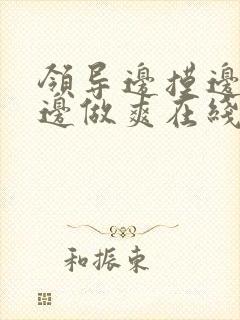 領导邊摸邊
邊做爽在綫
和振東